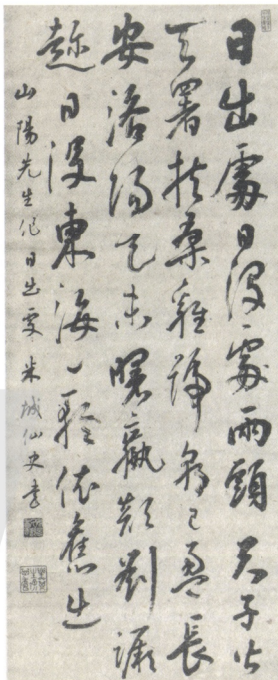 日出處日没處兩頭天子皆
天署扶桑雞號朝已盈長
安洛陽天未曙嬴顛劉蹶
趂日没東海一輪依舊出
山陽先生作日出處 米城仙史書